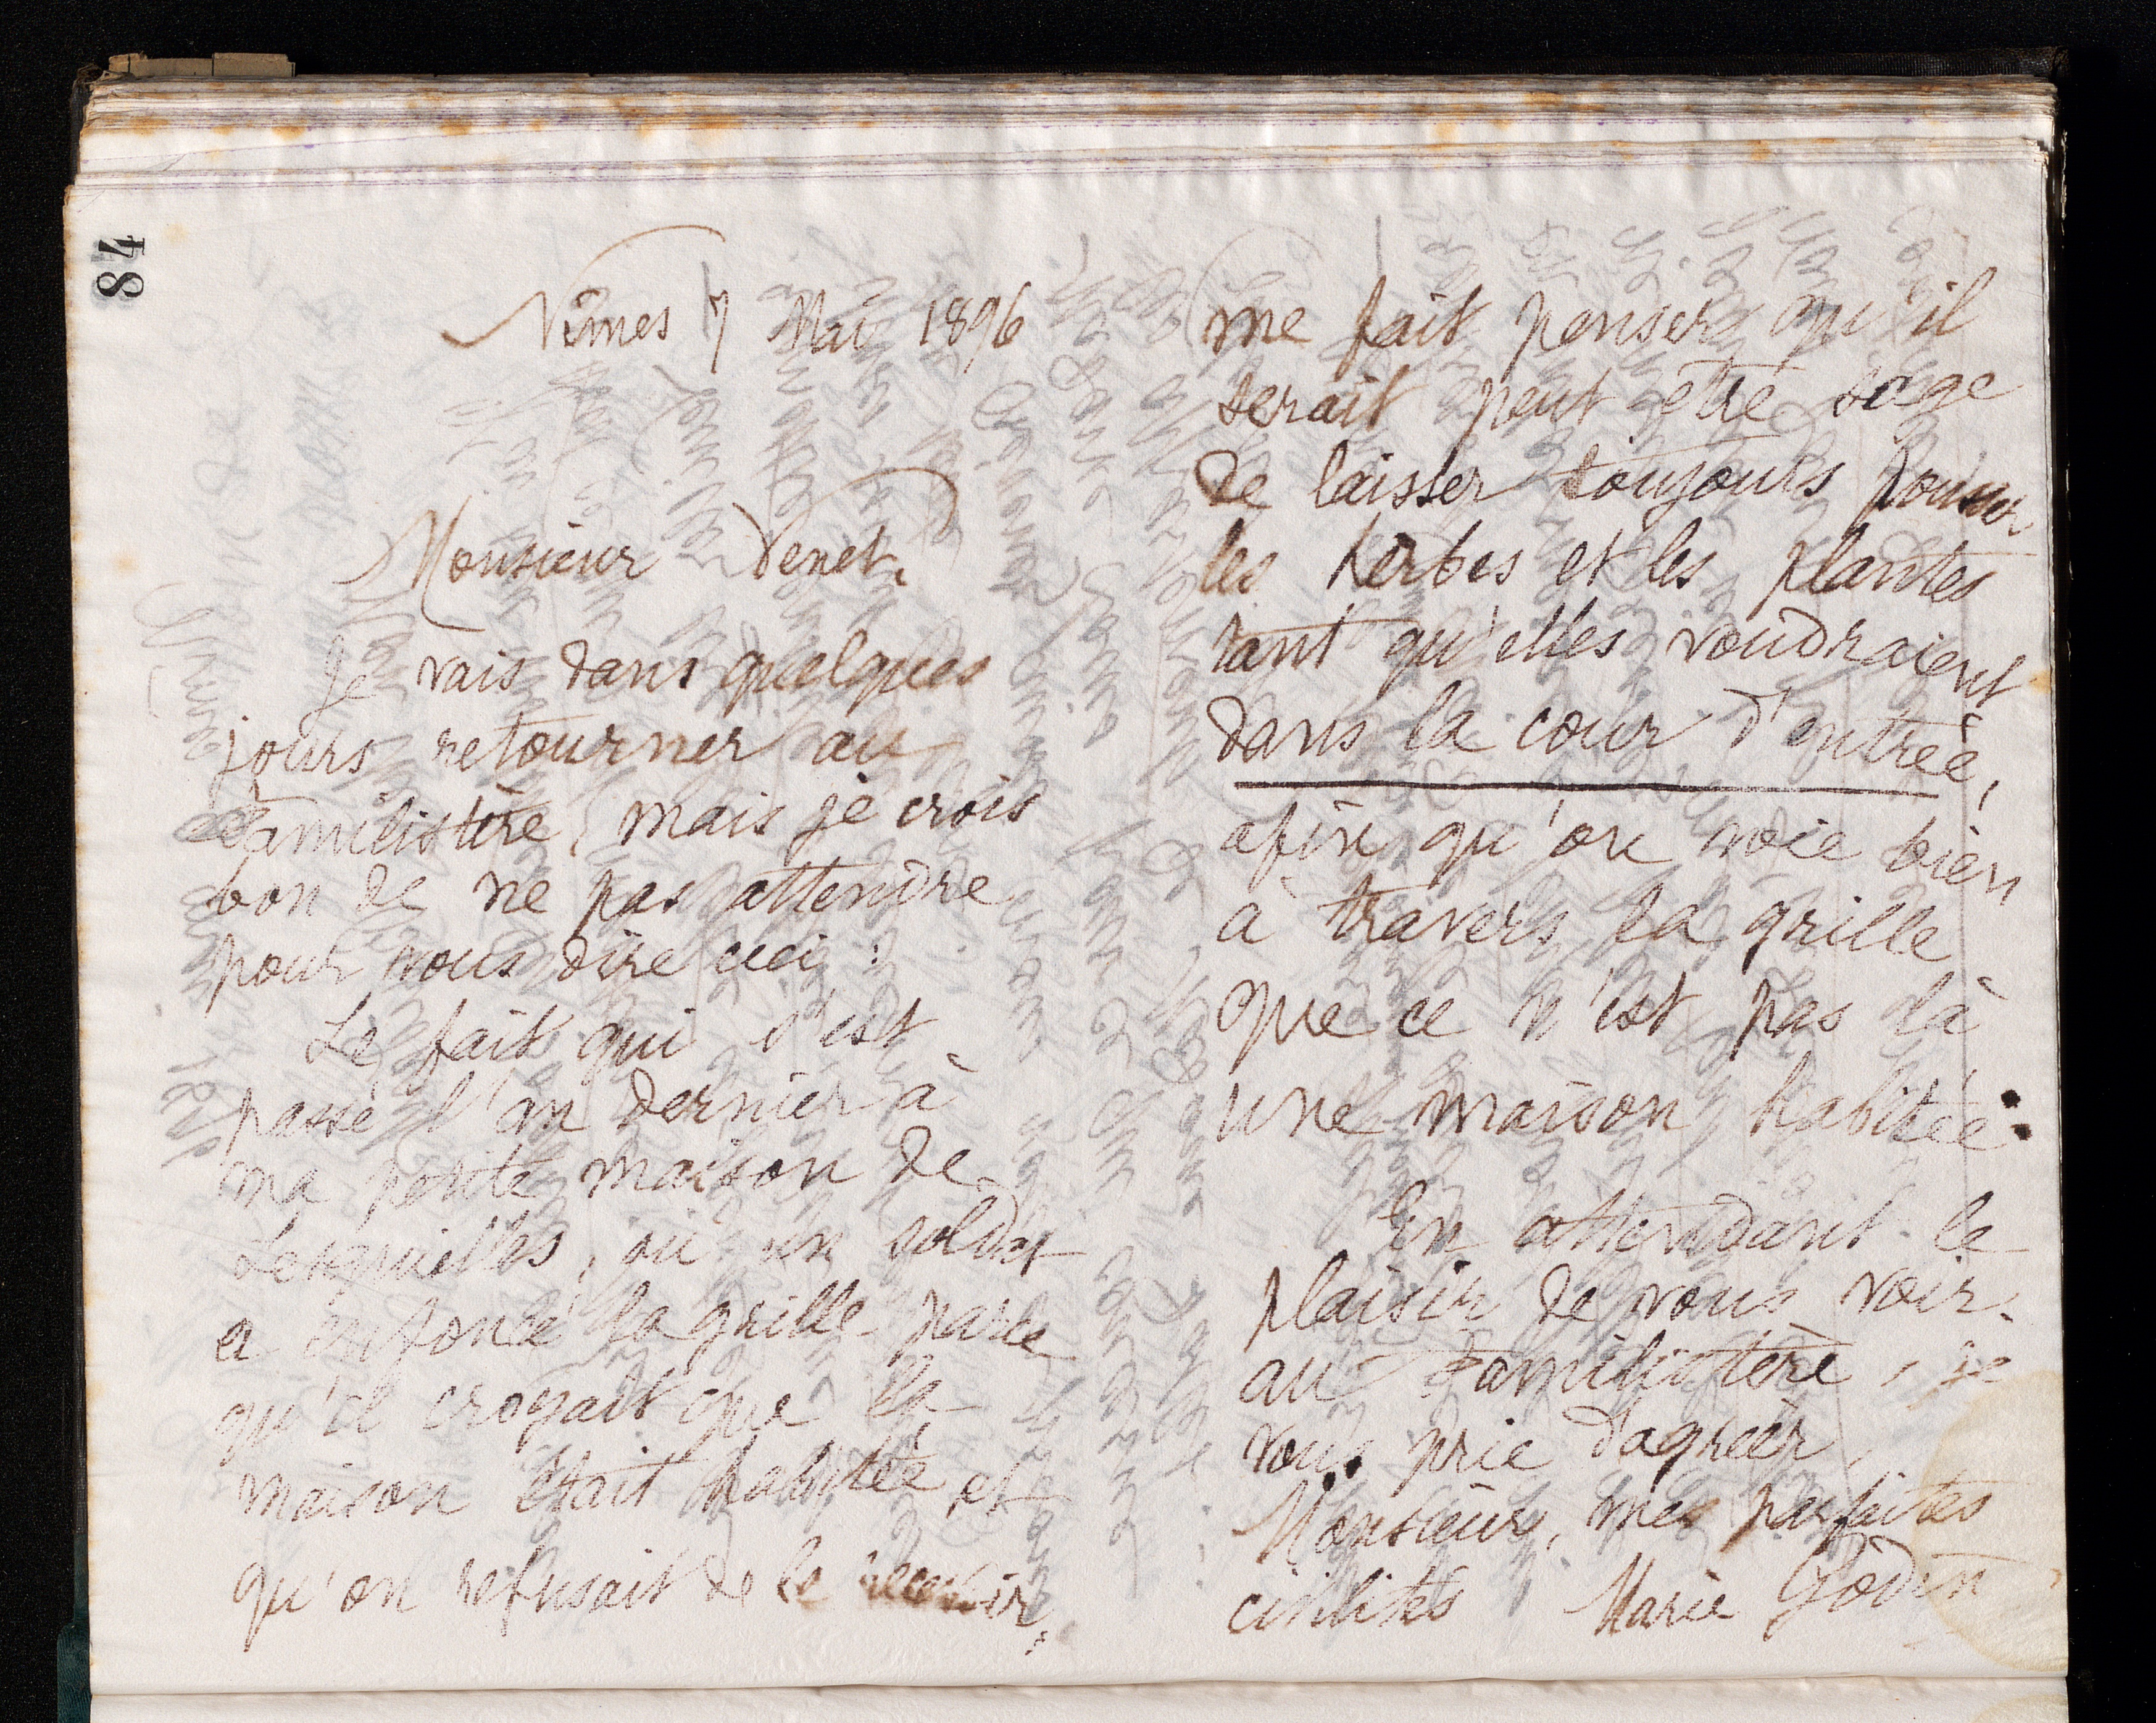 84
Nîmes 7 Mai 1896
Monsieur Venet,
Je vais dans quelques
jours retourner au
Familistère, mais je crois
bon de ne pas attendre
pour vous dire ceci :
Le fait qui s'est
passé l'an dernier à
ma petite maison de
Lesquielles, où un soldat
a enfoncé la grille parce
qu'il croyait que la
maison était habitée et
qu'on refusait de le recevoir,
me fait penser qu'il
serait peut être sage
de laisser toujours pousser
les herbes et les plantes
tant qu'elles voudraient
dans la cour d'entrée,
afin qu'on voie bien
à travers la grille
que ce n'est pas là
une maison habitée.
En attendant le
plaisir de vous voir
au Familistère, je
vous prie d'agréer,
Monsieur, mes parfaites
civilités
Marie Godin